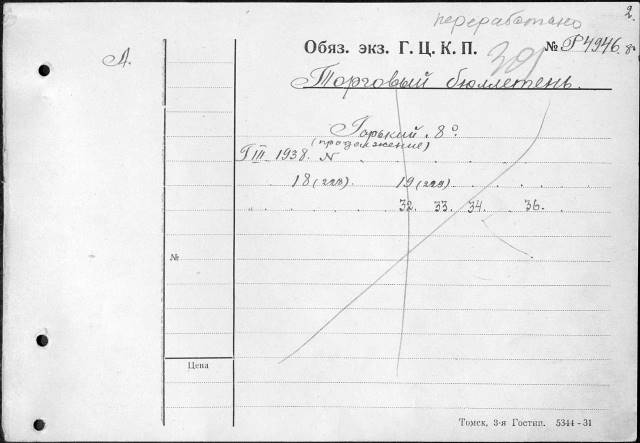 переработано
2.
Обяз. экз. Г. Ц. К. П. № Р4946
А.
Торговый бюллетень.
Горький. 8°
(продолжение)
Г III 1938. N
18 (газ). 19 (газ)
32. 33. 34. 36.
№
Цена
Томск, 3-я Гостип. 5344-31